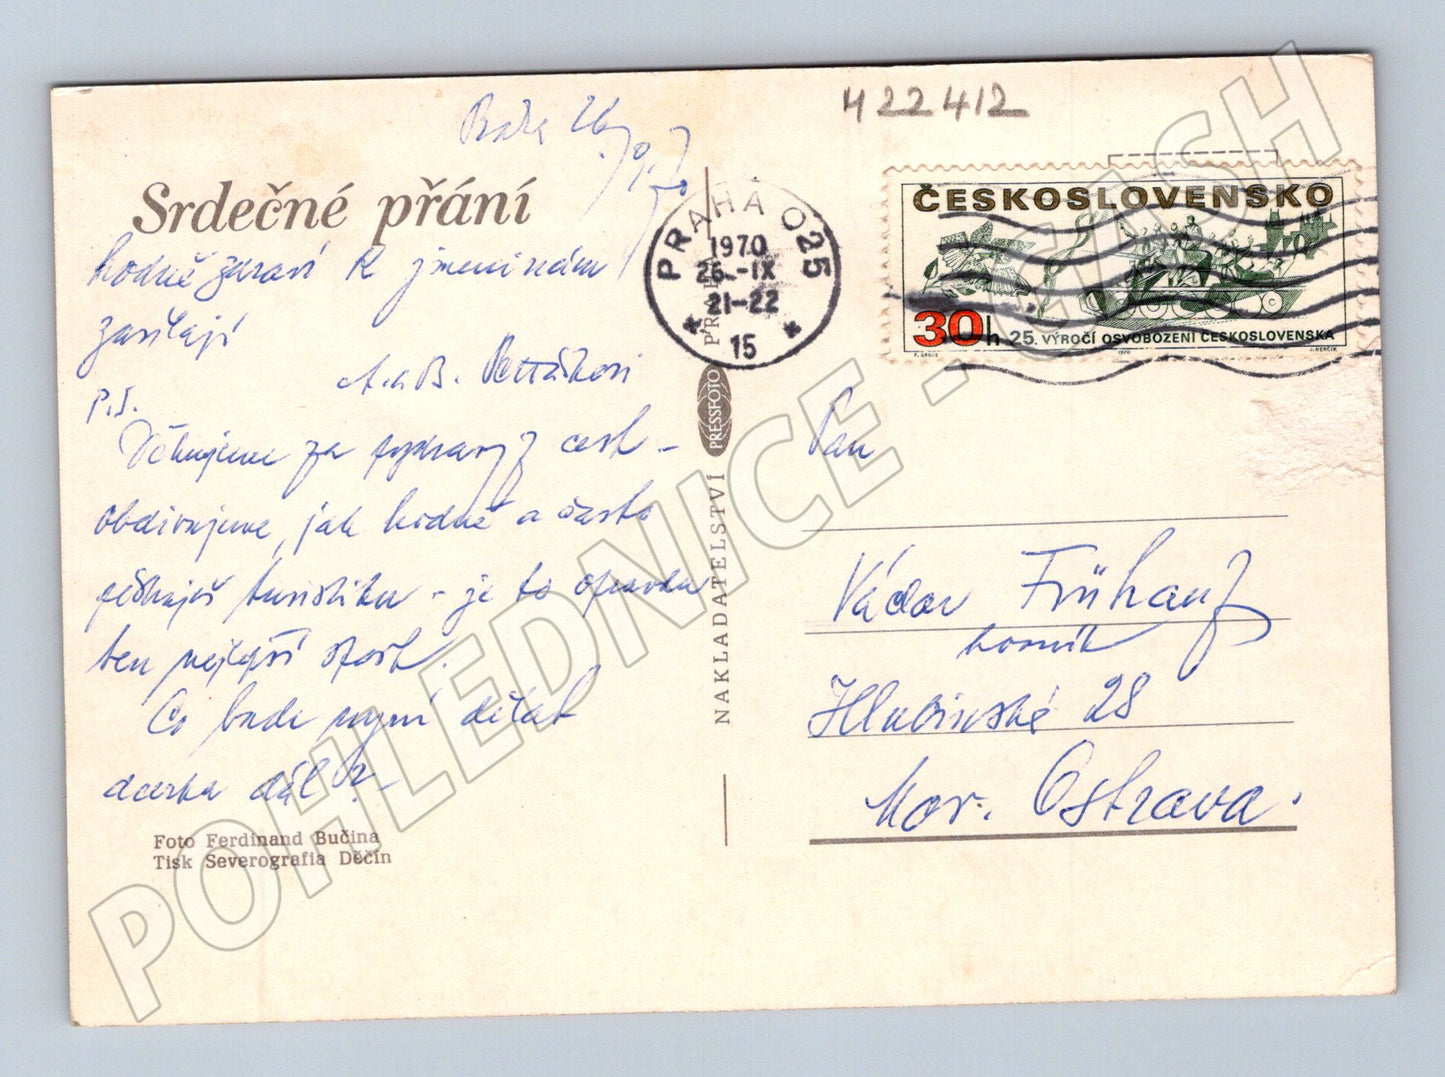 M 22412
Praha 26
Srdečné přání
hodně zdraví k jmeninám
zasílají
A. a B.
P.S.
Děkujeme za cest-
obdivujeme, jak hodně a často
pěstuješ turistiku - je to opravdu
ten nejlepší sport.
Co bude nyní dělat
dcerka dál? -
Foto Ferdinand Bučina
Tisk Severografia Děčín
NAKLADATELSTVÍ PRESSFOTO PRAHA
PRAHA 025
1970
26.-IX
21-22
15
ČESKOSLOVENSKO
30h 25. VÝROČÍ OSVOBOZENÍ ČESKOSLOVENSKA
1970
J. HERČÍK
Pan
Václav Frühauf
horník
Hlubinská 28
Mor. Ostrava.
POHLEDNICE - CASH